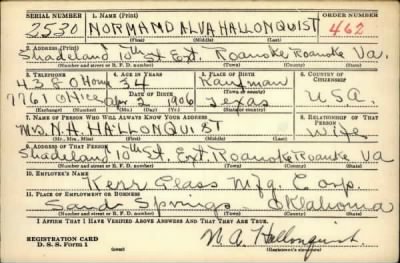 SERIAL NUMBER 1. NAME (Print) ORDER NUMBER
2530 NORMAND ALVA HALLONQUIST 462
(First) (Middle) (Last)
2. ADDRESS (Print)
Shadeland 10th St. Ext. Roanoke Roanoke Va.
(Number and street or R. F. D. number) (Town) (County) (State)
3. TELEPHONE 4. AGE IN YEARS 5. PLACE OF BIRTH 6. COUNTRY OF CITIZENSHIP
Home Kaufman
(Town or county)
7761 Office Apr. 1906 Texas U.S.A.
(Exchange) (Number) (Mo.) (Day) (Yr.) (State or country)
7. NAME OF PERSON WHO WILL ALWAYS KNOW YOUR ADDRESS 8. RELATIONSHIP OF THAT PERSON
N.A. HALLONQUIST Wife
(Mr., Mrs., Miss) (First) (Middle) (Last)
9. ADDRESS OF THAT PERSON
Shadeland 10th St. Ext. Roanoke Roanoke Va
(Number and street or R. F. D. number) (Town) (County) (State)
10. EMPLOYER'S NAME
Kerr Glass Mfg. Corp.
11. PLACE OF EMPLOYMENT OR BUSINESS
Sand Springs Oklahoma
(Number and street or R. F. D. number) (Town) (County) (State)
I AFFIRM THAT I HAVE VERIFIED ABOVE ANSWERS AND THAT THEY ARE TRUE.
REGISTRATION CARD
D. S. S. Form 1 N. A. Hallonquist
(Registrant's signature)